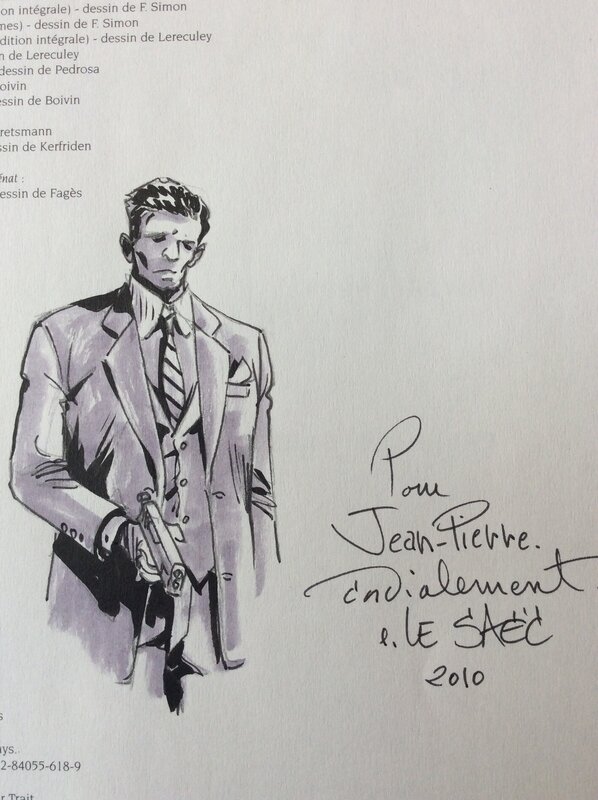 on intégrale) - dessin de F. Simon
mes) - dessin de F. Simon
dition intégrale) - dessin de Lereculey
n de Lereculey
dessin de Pedrosa
oivin
essin de Boivin
retsmann
ssin de Kerfriden
énat :
essin de Fagès
Pour
Jean-Pierre.
Cordialement
e. LE SAËC
2010
s
ays..
2-84055-618-9
r Trait